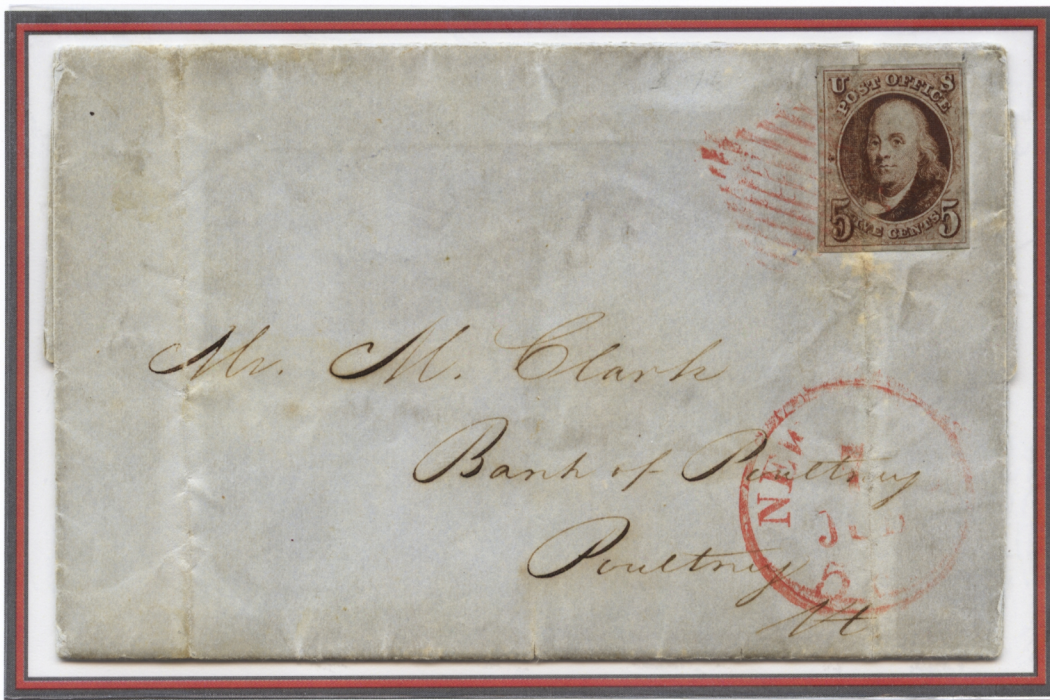 U S
POST OFFICE
5 FIVE CENTS 5
Mr. M. Clark
Bank of Poultney
Poultney
Vt
NEW
5